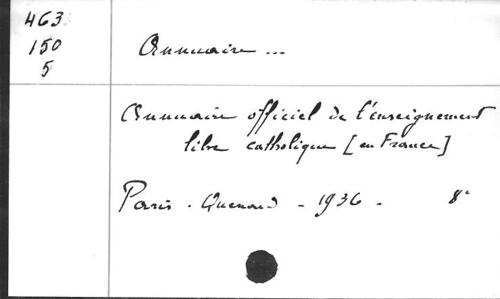 463
150
5
Annuaire ...
Annuaire officiel de l'enseignement
libre catholique [en France]
Paris . Quenaud - 1936 - 8°